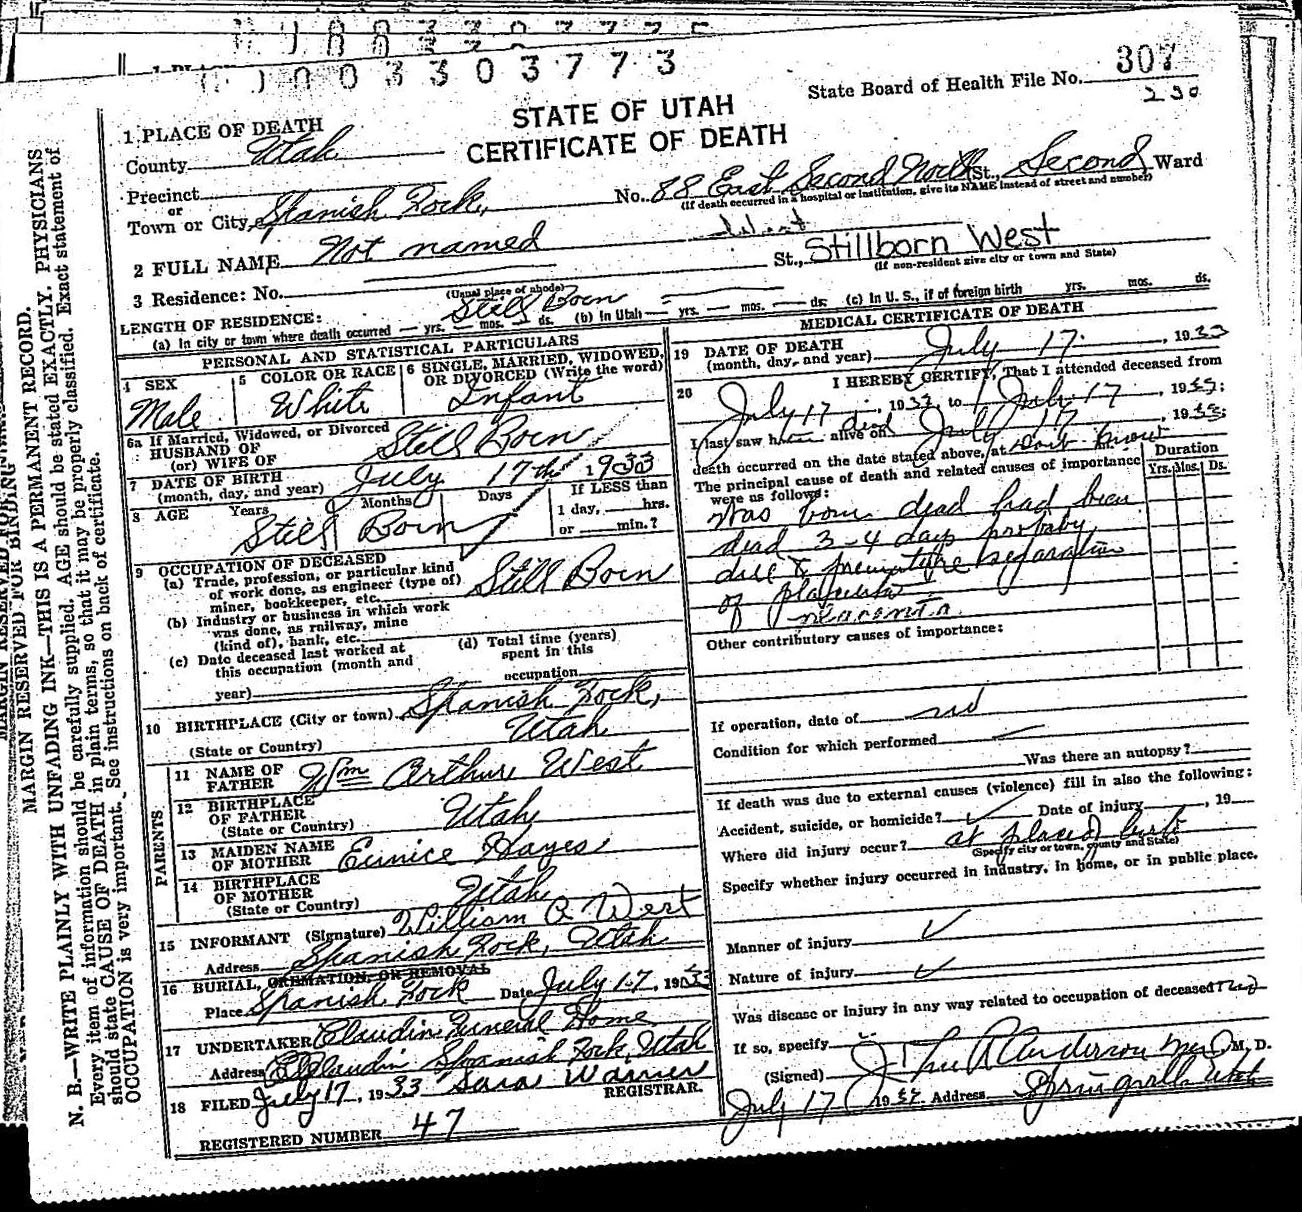 0033 03773
State Board of Health File No. 307
230
STATE OF UTAH
CERTIFICATE OF DEATH
1 PLACE OF DEATH
County Utah
Precinct
or
Town or City Spanish Fork,
No. 88 East Second North St., Second Ward
(If death occurred in a hospital or institution, give its NAME instead of street and number)
West
2 FULL NAME Not named
St., Stillborn West
(If non-resident give city or town and State)
3 Residence: No.
(Usual place of abode)
LENGTH OF RESIDENCE: Still Born
(a) In city or town where death occurred — yrs. — mos. — ds. (b) In Utah — yrs. — mos. — ds. (c) In U. S., if of foreign birth yrs. mos. ds.
PERSONAL AND STATISTICAL PARTICULARS
4 SEX
Male
5 COLOR OR RACE
White
6 SINGLE, MARRIED, WIDOWED,
OR DIVORCED (Write the word)
Infant
6a If Married, Widowed, or Divorced
HUSBAND OF
(or) WIFE OF
Still Born
7 DATE OF BIRTH
(month, day, and year) July 17th 1933
8 AGE Years Months Days
Still Born
If LESS than
1 day, hrs.
or min.?
9 OCCUPATION OF DECEASED
(a) Trade, profession, or particular kind
of work done, as engineer (type of)
miner, bookkeeper, etc. Still Born
(b) Industry or business in which work
was done, as railway, mine
(kind of), bank, etc.
(c) Date deceased last worked at
this occupation (month and
year)
(d) Total time (years)
spent in this
occupation
10 BIRTHPLACE (City or town) Spanish Fork,
(State or Country) Utah
PARENTS
11 NAME OF
FATHER Wm Arthur West
12 BIRTHPLACE
OF FATHER
(State or Country) Utah
13 MAIDEN NAME
OF MOTHER Eunice Hayes
14 BIRTHPLACE
OF MOTHER
(State or Country) Utah
15 INFORMANT (Signature) William A West
Address Spanish Fork, Utah
16 BURIAL, CREMATION, OR REMOVAL
Place Spanish Fork Date July 17, 1933
17 UNDERTAKER Claudin Funeral Home
Address Claudin Spanish Fork, Utah
18 FILED July 17, 1933 Sara Warner
REGISTRAR.
REGISTERED NUMBER 47
MEDICAL CERTIFICATE OF DEATH
19 DATE OF DEATH
(month, day, and year) July 17, 1933
20 I HEREBY CERTIFY, That I attended deceased from
July 17, 1933 to July 17, 1933;
I last saw him alive on July 17, 1933;
dead
death occurred on the date stated above, at dont know
The principal cause of death and related causes of importance
were as follows:
Duration
Yrs. Mos. Ds.
Was born dead had been
dead 3-4 days probably
due to premature separation
of placenta
placenta.
Other contributory causes of importance:
If operation, date of no
Condition for which performed
Was there an autopsy?
If death was due to external causes (violence) fill in also the following:
Accident, suicide, or homicide? Date of injury , 19
Where did injury occur? at place of birth
(Specify city or town, county and State)
Specify whether injury occurred in industry, in home, or in public place.
Manner of injury
Nature of injury
Was disease or injury in any way related to occupation of deceased? no
If so, specify
(Signed) Anderson M. D.
July 17 19 Address Springville Utah
MARGIN RESERVED FOR BINDING
N. B.—WRITE PLAINLY WITH UNFADING INK—THIS IS A PERMANENT RECORD.
Every item of information should be carefully supplied. AGE should be stated EXACTLY. PHYSICIANS
should state CAUSE OF DEATH in plain terms, so that it may be properly classified. Exact statement of
OCCUPATION is very important. See instructions on back of certificate.